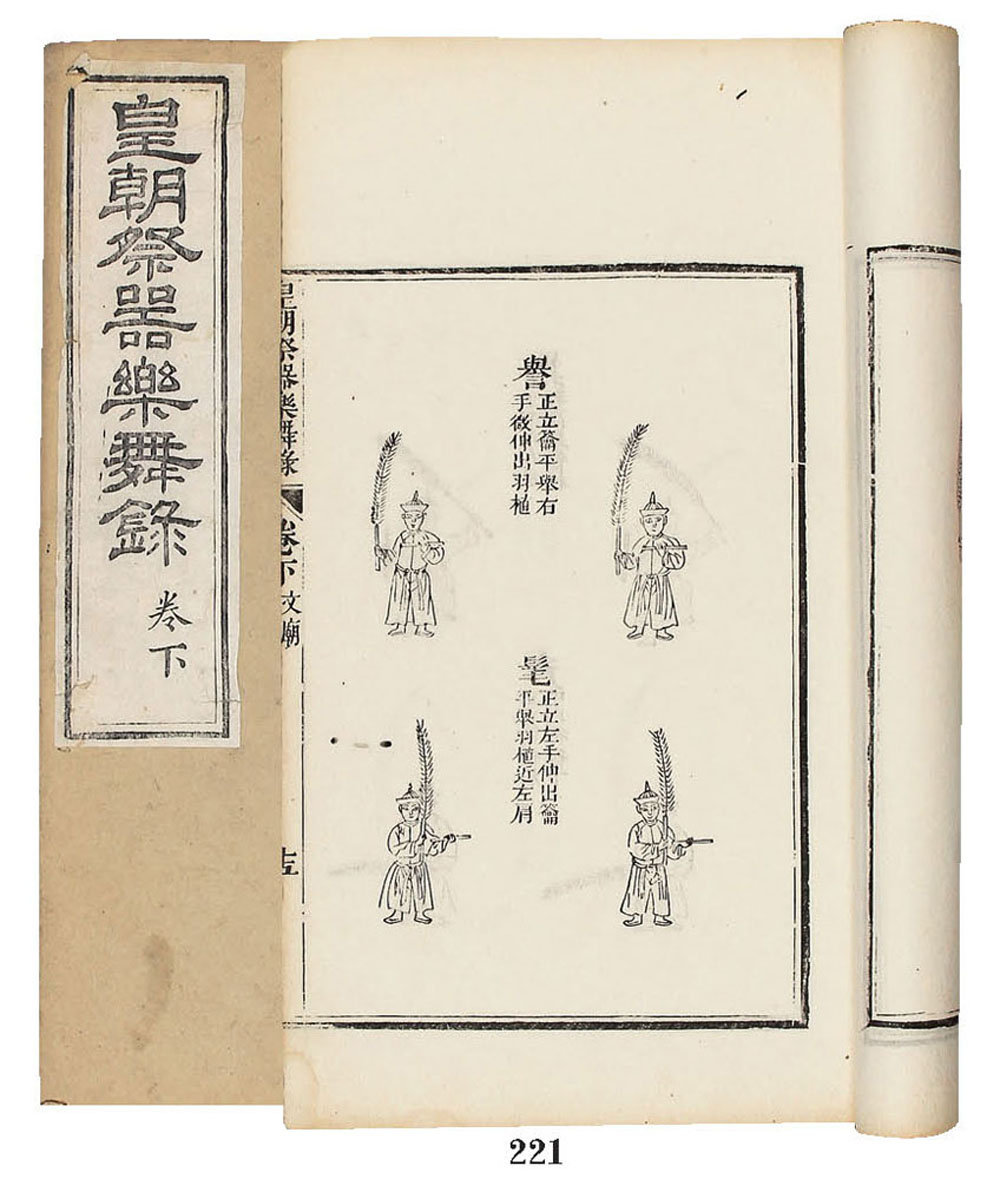 皇朝祭器樂舞錄
卷下
譽
正立籥平舉右
手微伸出羽植
髦
正立左手伸出籥
平舉羽植近左肩
皇朝祭器樂舞錄
卷下
文廟
十五
221